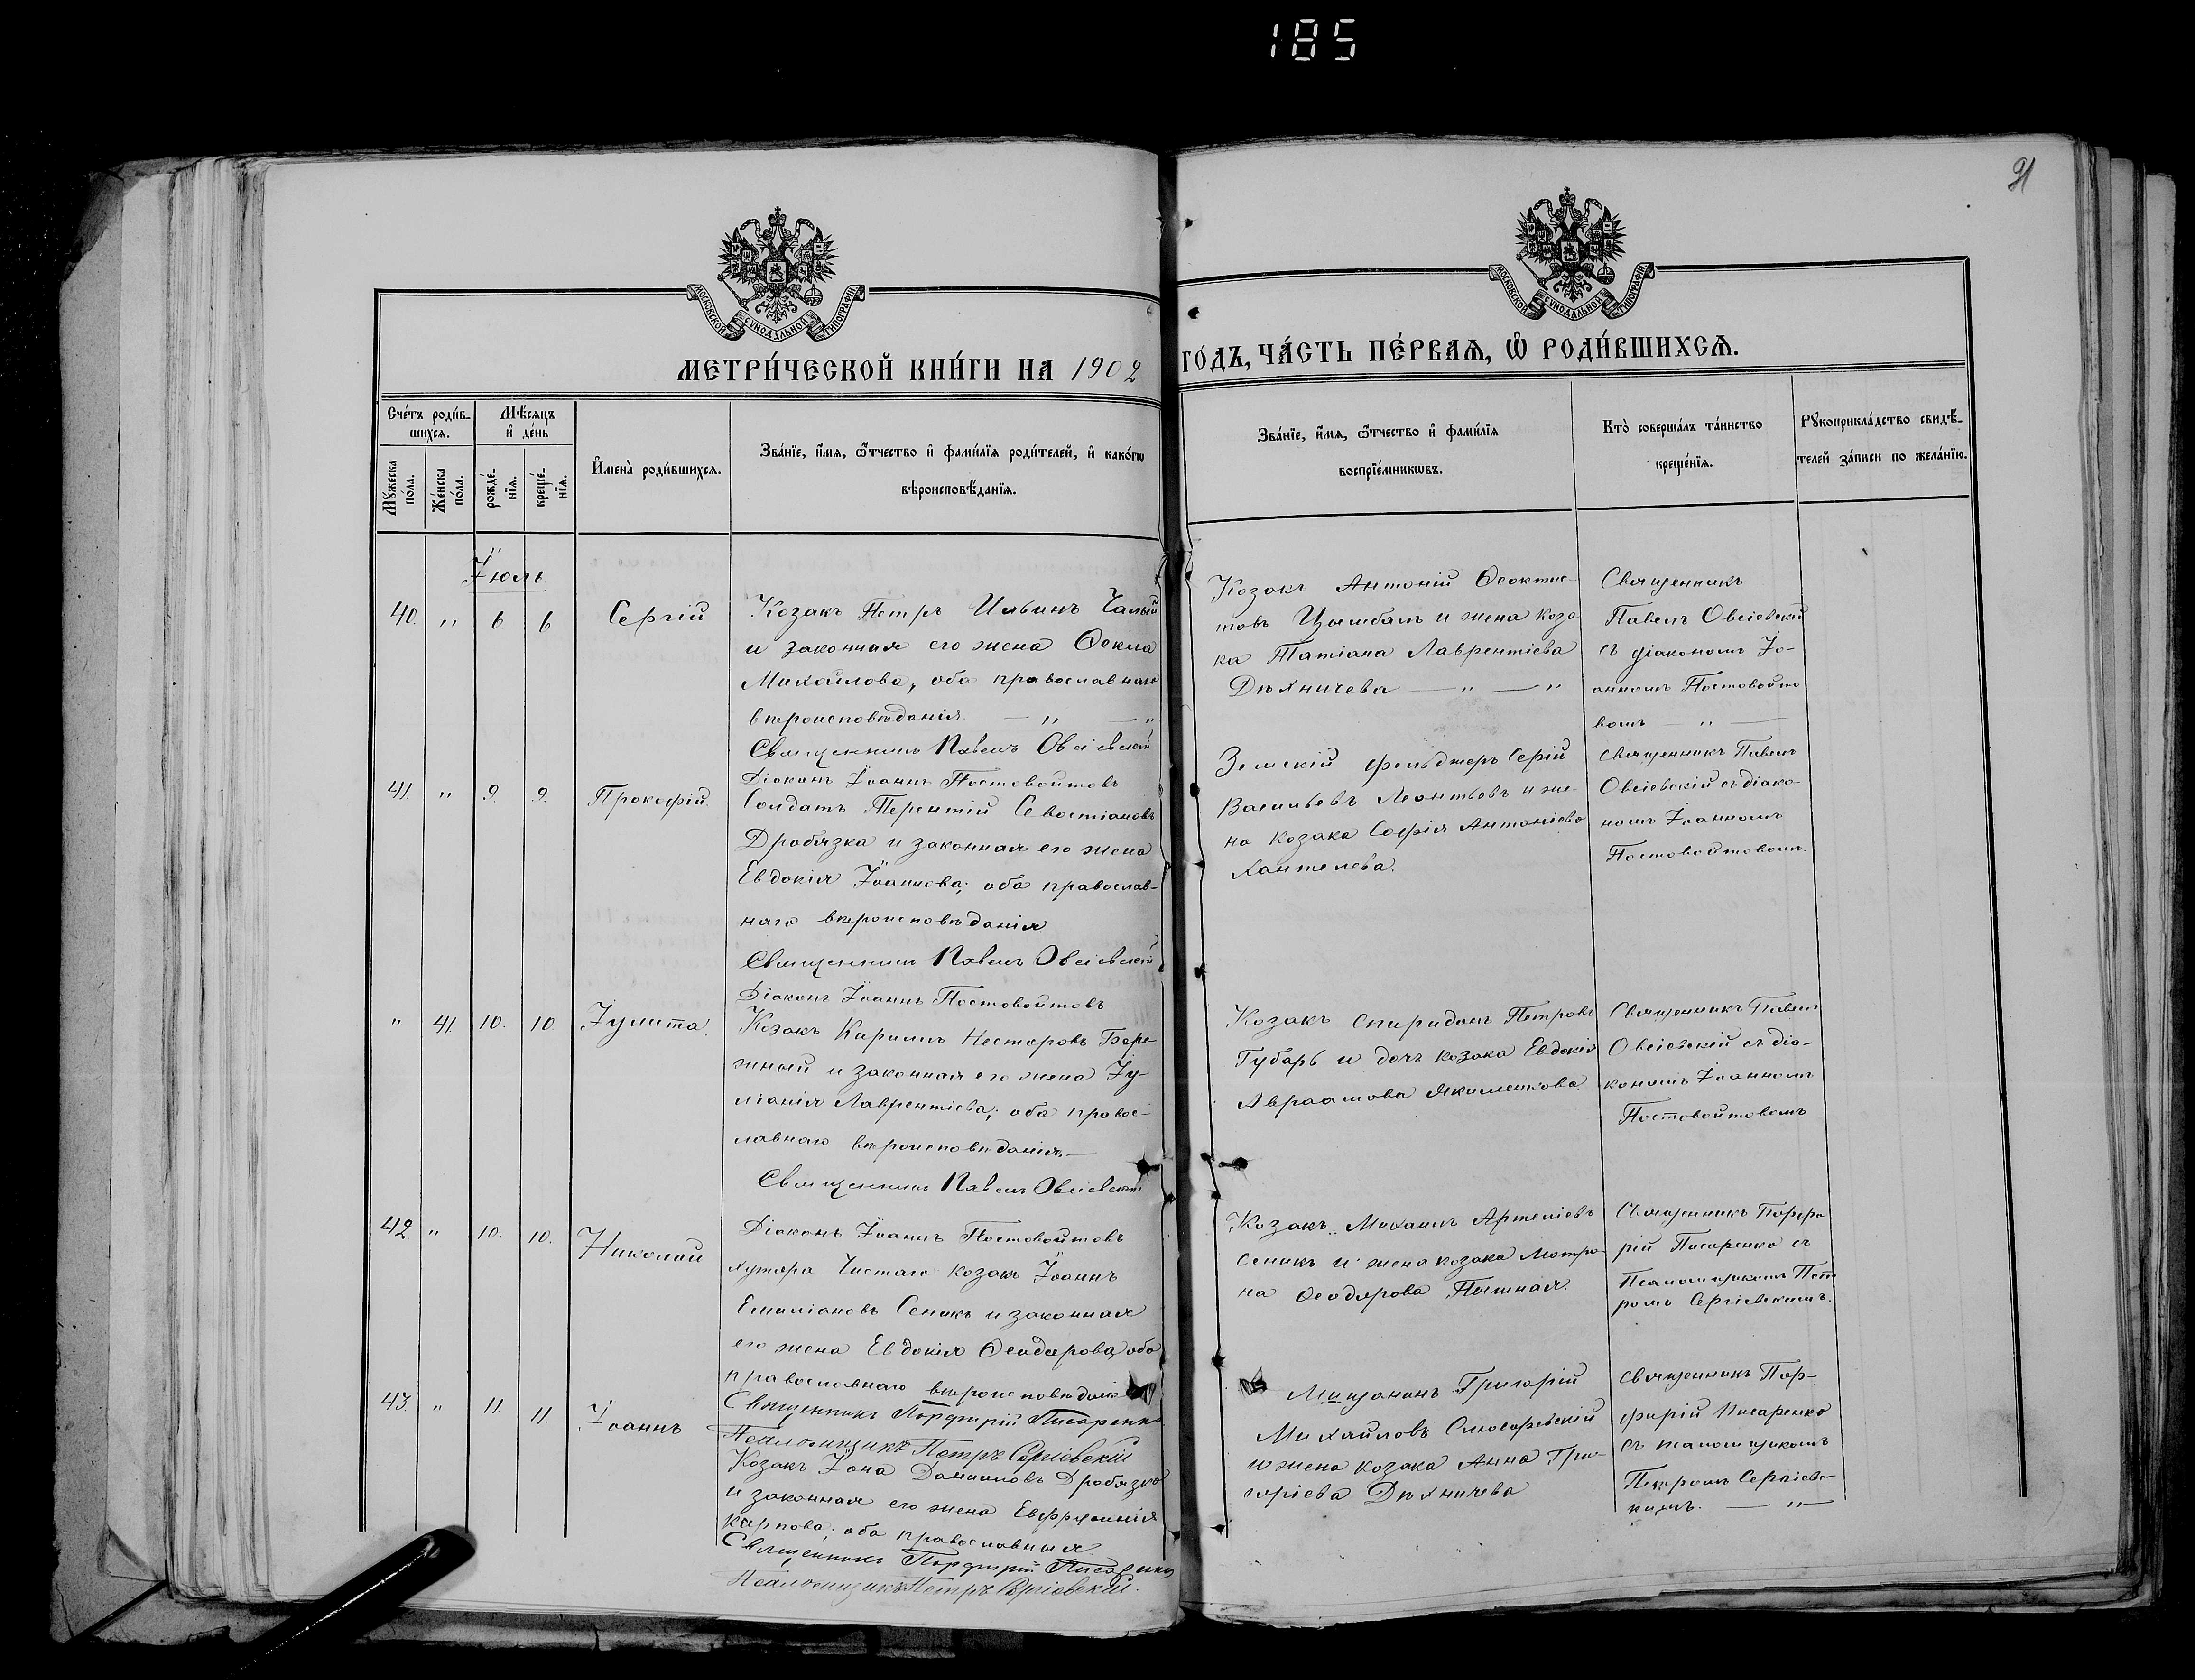 185
91
МОСКОВСКОЙ СѴНОДАЛЬНОЙ ТИПОГРАФІИ
МОСКОВСКОЙ СѴНОДАЛЬНОЙ ТИПОГРАФІИ
МЕТРИ́ЧЕСКОЙ КНИ́ГИ НА 1902
ГО́ДЪ, ЧА́СТЬ ПЕ́РВАЯ, Ѽ РОДИ́ВШИХСЯ.
Сче́тъ роди́в-
шихся.
Мѣсяцъ
и҆ де́нь
Мꙋжеска
по́ла.
Же́нска
по́ла.
рожде́-
нїя.
креще́-
нїя.
И҆мена̀ роди́вшихся.
Зва́нїе, и҆́мя, ѻ҆́тчество и҆ фами́лїя роди́телей, и҆ како́гѡ
вѣроисповѣ́данїя.
Зва́нїе, и҆́мя, ѻ҆́тчество и҆ фами́лїя
воспрїе́мникѡвъ.
Кто̀ соверша́лъ та́инство
креще́нїя.
Рꙋкоприкла́дство свидѣ́-
телей за́писи по жела́нїю.
Іюль
40. " 6 6 Сергій
Козакъ Петръ Ильинъ Чалый
и законная его жена Ѳекла
Михайлова, оба православнаго
вѣроисповѣданія. — " — "
Священникъ Павелъ Овсіевскій
Діаконъ Іоаннъ Постовойтовъ
Козакъ Антоній Ѳеоктис-
товъ Цымбалъ и жена коза
ка Татіана Лаврентіева
Дѣхничева — " — "
Священникъ
Павелъ Овсіевскій
съ діакономъ Іо-
анномъ Постовойто
вымъ — " —
41. " 9. 9. Прокофій.
Солдатъ Терентій Севостіановъ
Дробязка и законная его жена
Евдокія Іоаннова; оба православ-
наго вѣроисповѣданія.
Священникъ Павелъ Овсіевскій
Діаконъ Іоаннъ Постовойтовъ
Земскій фельдшеръ Сергій
Васильевъ Леонтьевъ и же-
на козака Софія Антоніева
Хантелева.
Священникъ Павелъ
Овсіевскій съ діако-
номъ Іоанномъ
Постовойтовымъ.
" 41. 10. 10. Іулита.
Козакъ Кириллъ Несторовъ Бере-
жный и законная его жена Іу-
ліанія Лаврентіева; оба правос-
лавнаго вѣроисповѣданія. —
Священникъ Павелъ Овсіевскій
Діаконъ Іоаннъ Постовойтовъ
Козакъ Спиридонъ Петровъ
Губарь и дочь козака Евдокія
Авраамова Якименкова
Священникъ Павелъ
Овсіевскій съ діа-
кономъ Іоанномъ
Постовойтовымъ
42. " 10. 10. Николай
хутора Чистаго козакъ Іоаннъ
Емиліановъ Сеникъ и законная
его жена Евдокія Ѳеодорова, оба
православнаго вѣроисповѣданія
Священникъ Порфирій Писаренко
Псаломщикъ Петръ Сергіевскій
Козакъ Михаилъ Артеміевъ
Сеникъ и жена козака Мотро-
на Ѳеодорова Пышная.
Священникъ Порфи
рій Писаренко съ
Псаломщикомъ Пет
ромъ Сергіевскимъ.
43. " 11. 11. Іоаннъ
Козакъ Іона Даниловъ Дробязко
и законная его жена Евфросинія
Карпова; оба православныя
Священникъ Порфирій Писаренко
Псаломщикъ Петръ Сергіевскій.
Мищанинъ Григорій
Михайловъ Слюсаревскій
и жена козака Анна Гри-
горіева Дѣхничева
Священникъ Пор-
фирій Писаренко
съ псаломщикомъ
Петромъ Сергіевс-
кимъ. — " —